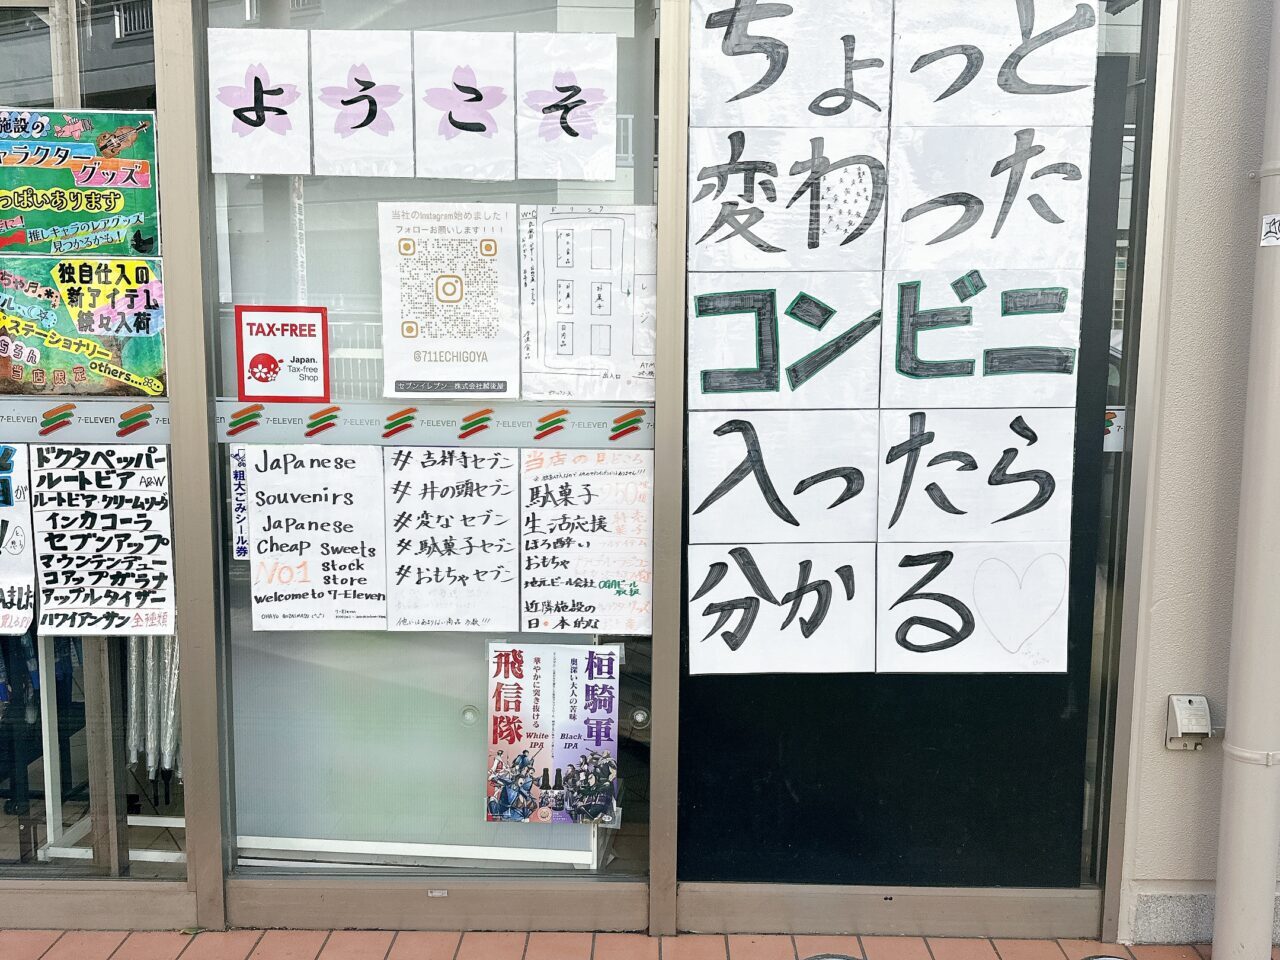 ようこそ
ちょっと
変わった
コンビニ
入ったら
分かる
施設の
キャラクター
グッズ
っぱいあります
推しキャラのレアグッズ
見つかるかも!
独自仕入の
新アイテム
続々入荷
ステーショナリー
当店限定
others...
当社のInstagram始めました!
フォローお願いします!!!
@711ECHIGOYA
セブンイレブン 株式会社越後屋
W・C
ドリンク
お菓子
日用品
レジ
出入口
ATM
TAX-FREE
Japan.
Tax-free
Shop
7-ELEVEN 7-ELEVEN 7-ELEVEN 7-ELEVEN 7-ELEVEN 7-ELEVEN
ドクタペッパー
ルートビア A&W
ルートビアクリームソーダ
インカコーラ
セブンアップ
マウンテンデュー
コアップガラナ
アップルタイザー
ハワイアンサン 全種類
粗大ごみシール券
Japanese
Souvenirs
Japanese
Cheap Sweets
No1 stock
store
welcome to 7-Eleven
#吉祥寺セブン
#井の頭セブン
#変なセブン
#駄菓子セブン
#おもちゃセブン
当店の見どころ
駄菓子
生活応援
ほろ酔い
おもちゃ
地元ビール会社
近隣施設の
日・本的な
桓騎軍
奥深い大人の苦味
Black
IPA
飛信隊
華やかに突き抜ける
White
IPA